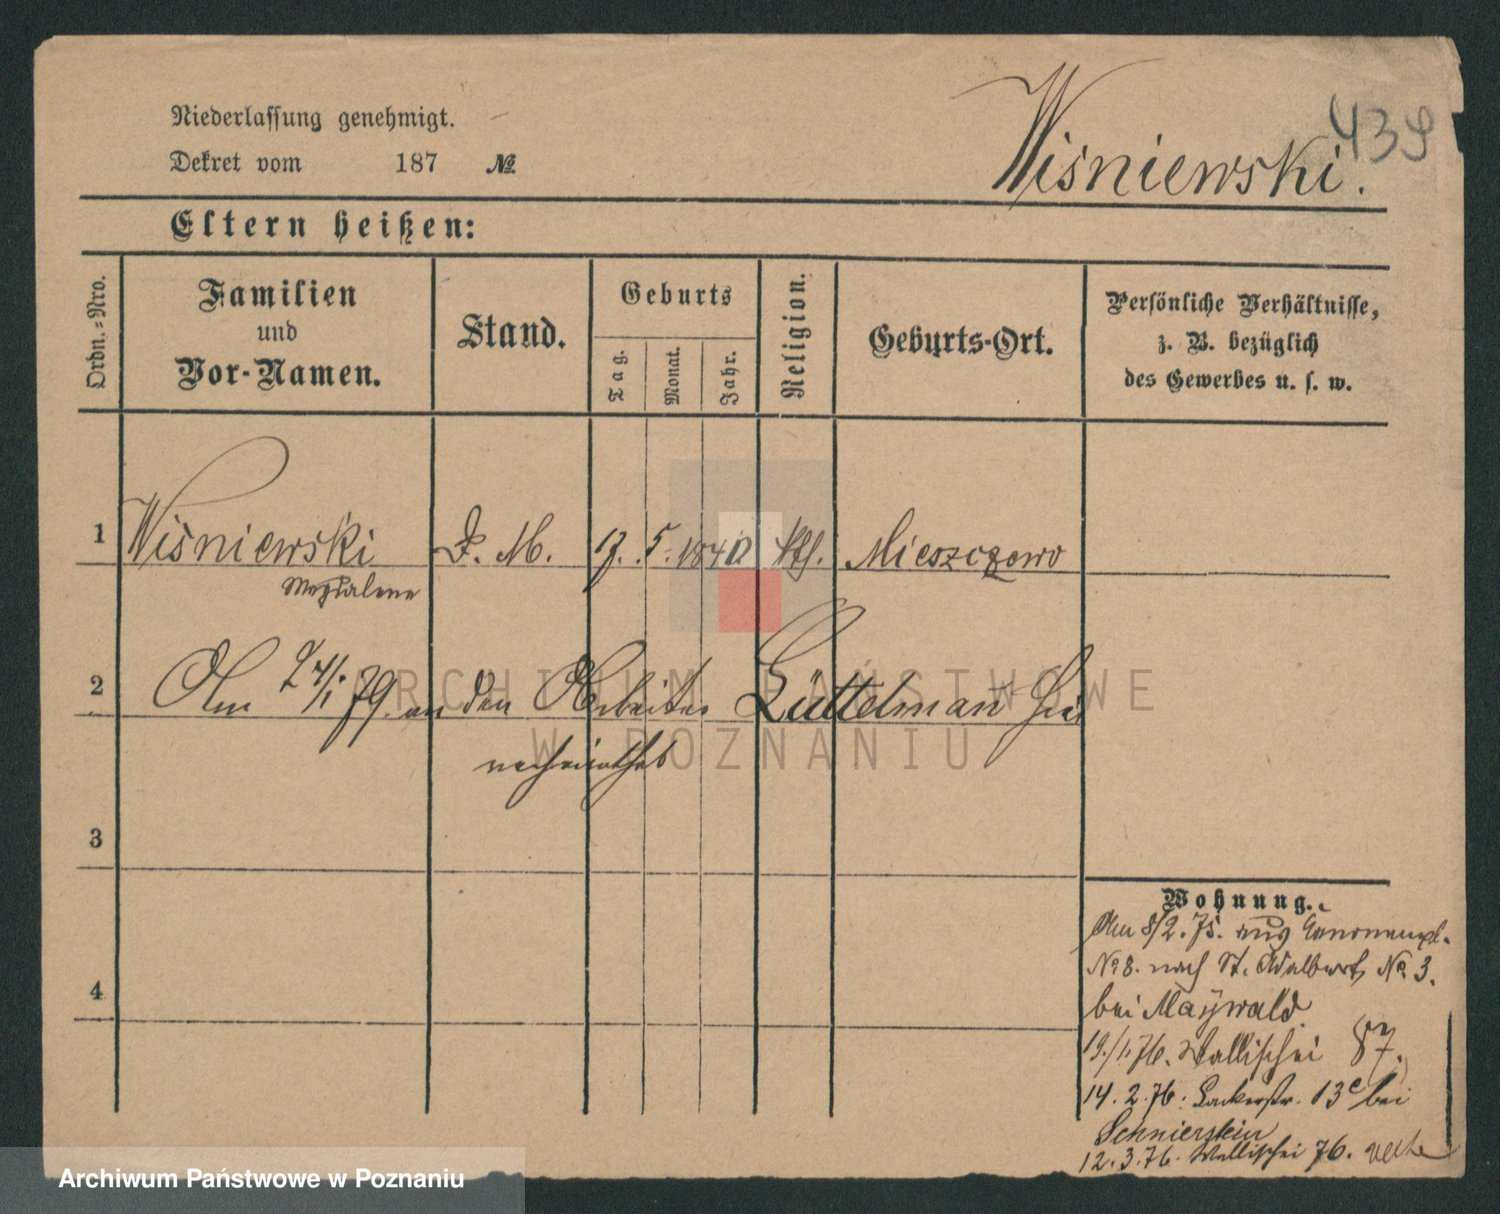 Niederlassung genehmigt.
Dekret vom 187 №
Wiśniewski.
439
Eltern heißen:
Ordn.=Nro.
Familien
und
Vor-Namen.
Stand.
Geburts
Tag.
Monat.
Jahr.
Religion.
Geburts-Ort.
Persönliche Verhältnisse,
z. B. bezüglich
des Gewerbes u. s. w.
1 Wiśniewski D. M. 17. 5. 1840 kth. Mieszczewo
Magdalene
2 Am 24/1 79. an den Arbeiter Lüttelman hier
verheirathet
3
4
Wohnung.
Am 8/2. 75. aus Canonenpl.
No 8. nach St. Adalbert No. 3.
bei Maywald
19./1. 76. Wallischei 87.
14. 2. 76. 13c bei
12. 3. 76. Wallischei 76.
ARCHIWUM PAŃSTWOWE
W POZNANIU
Archiwum Państwowe w Poznaniu